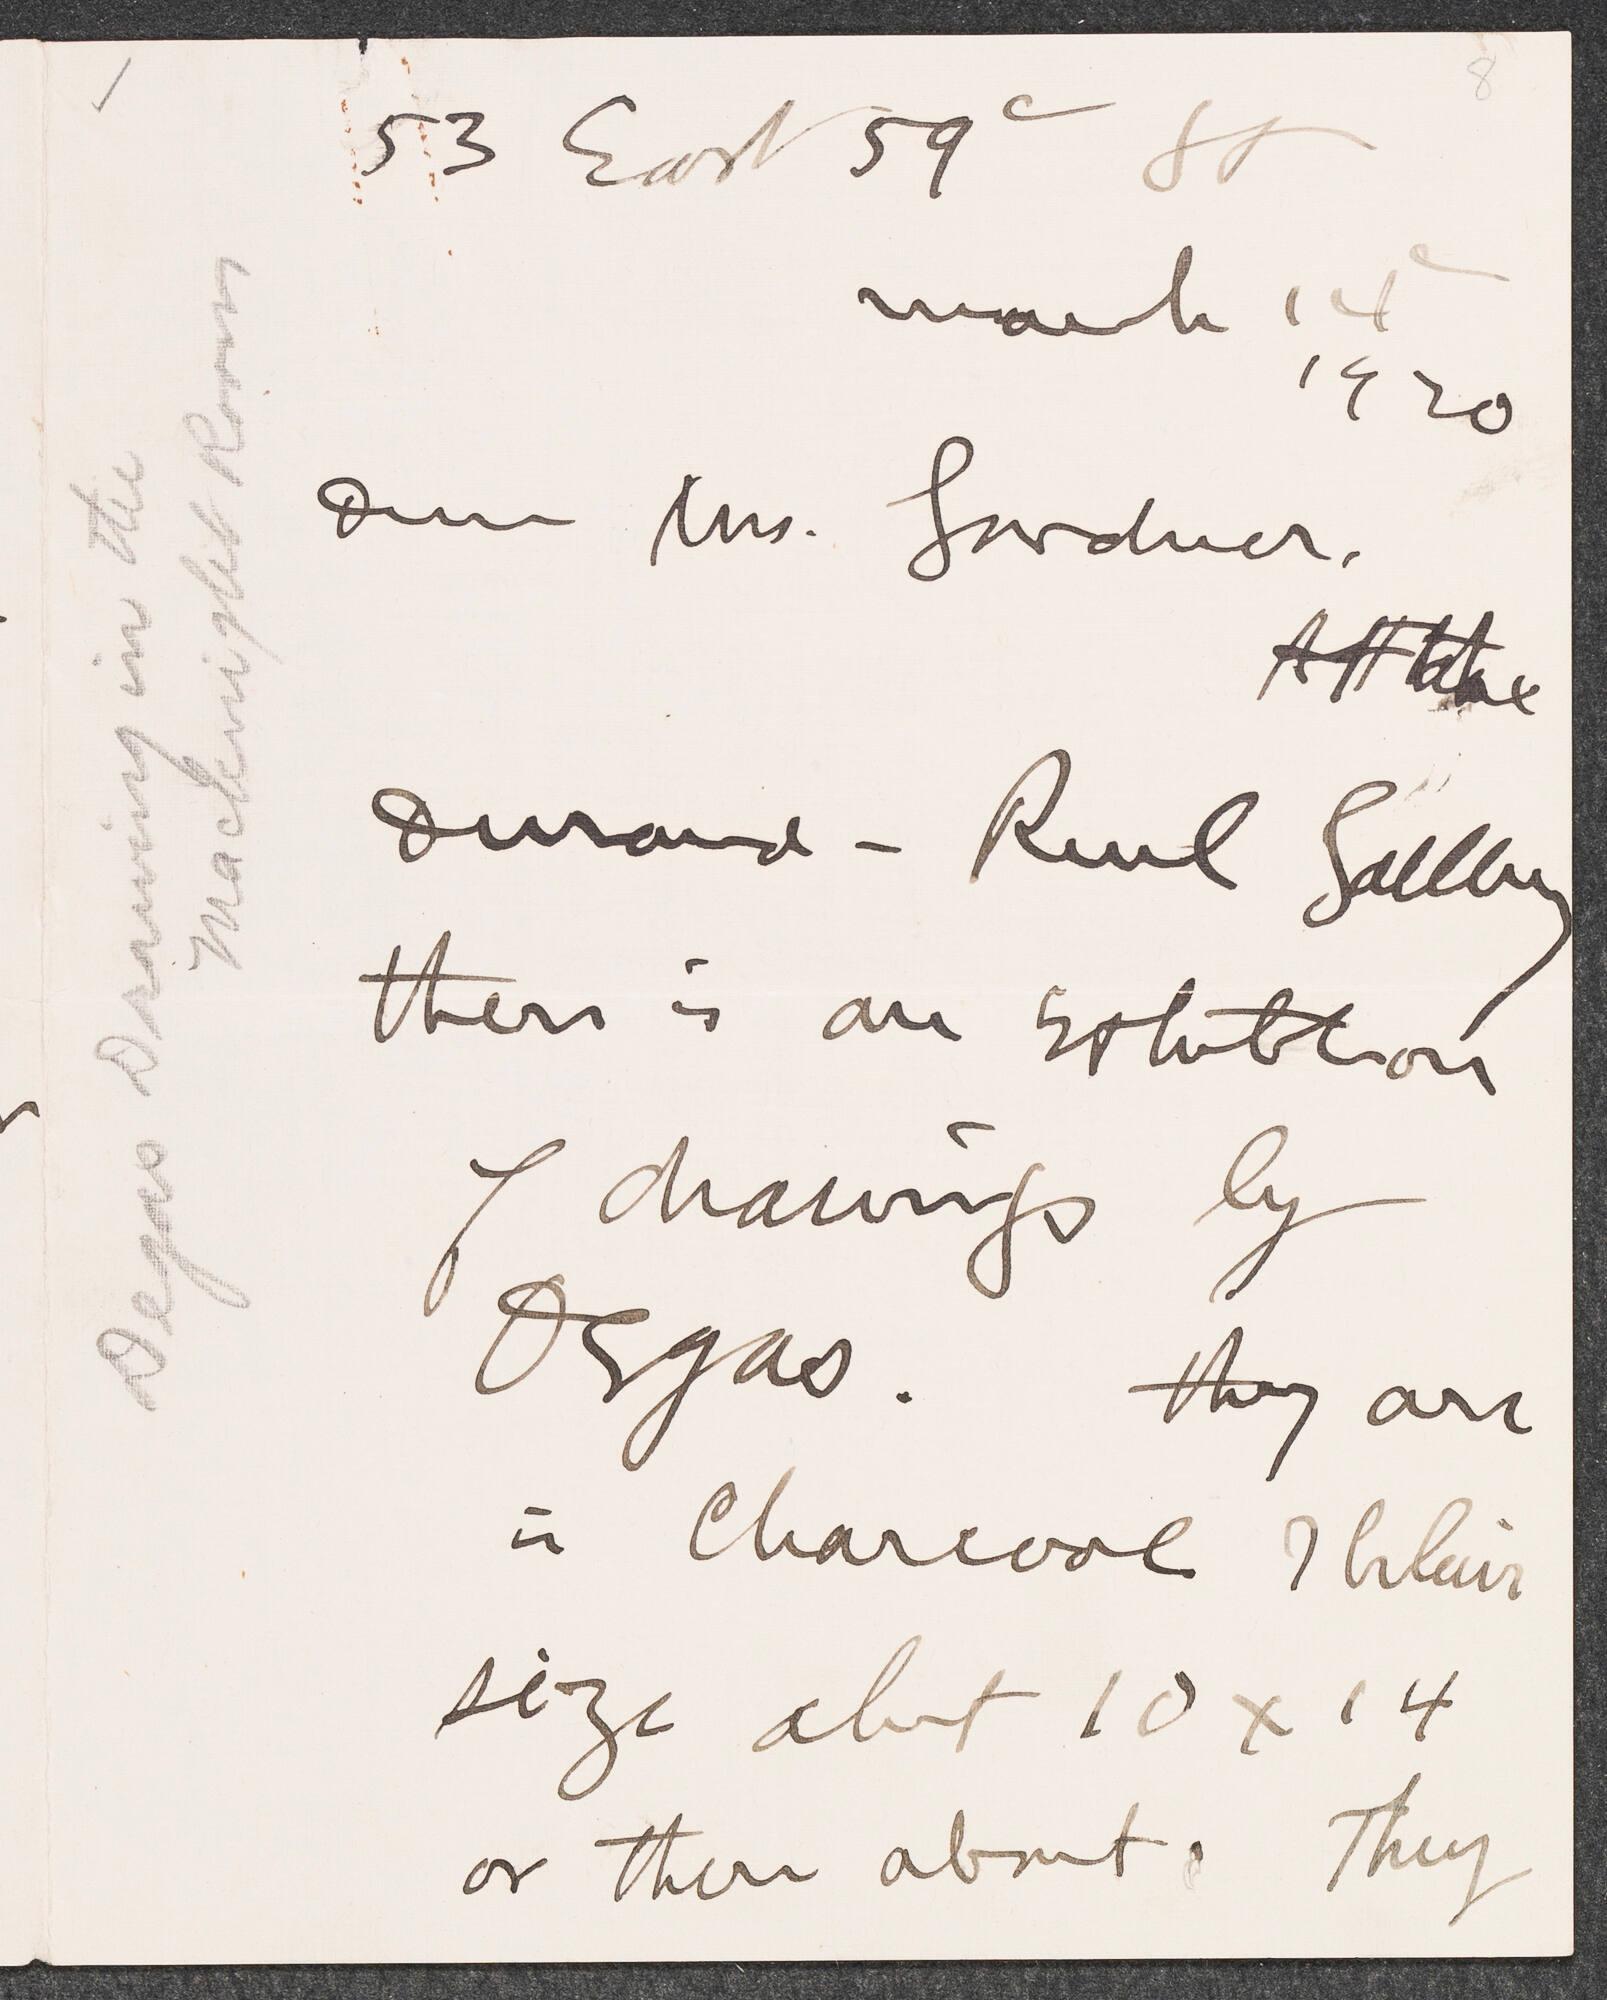 8
53 East 59e St
March 14e
1920
Dear Mrs. Gardner.
At the
Durand-Ruel Gallery
there is an exhibition
of drawings by
Degas. They are
in Charcoal
size about 10 x 14
or there about. They
Degas Drawing in the
Macknight Room